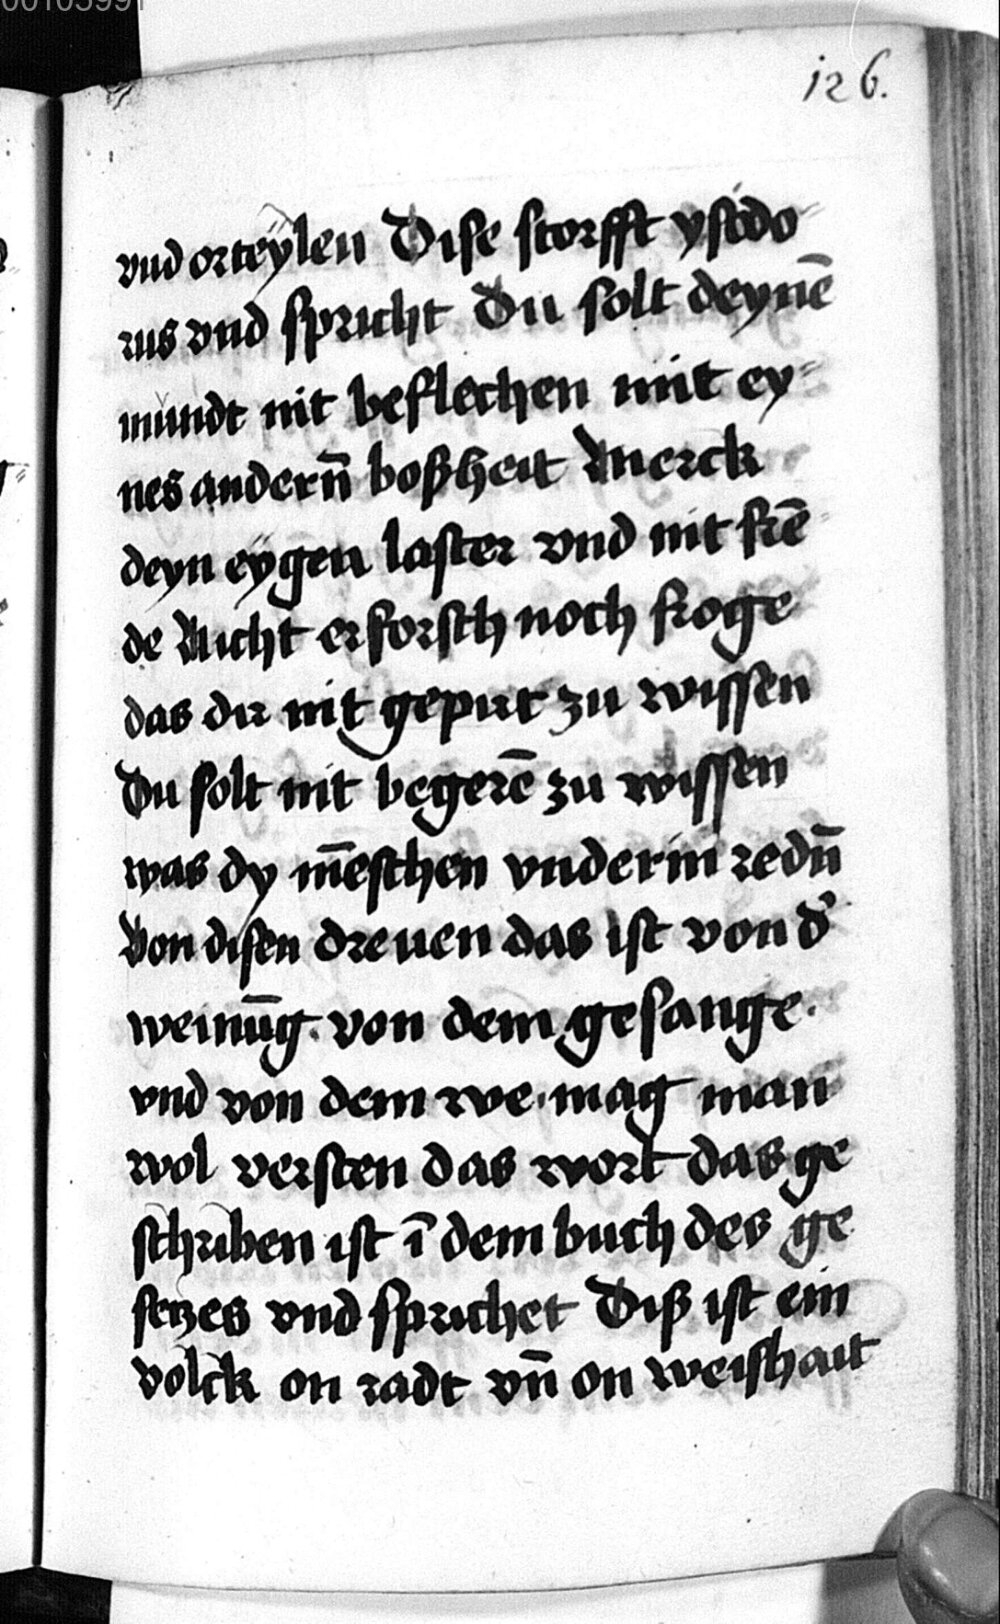 00103991
126.
vnd orteÿlen Dise storfft ysido⸗
rus vnd spricht Du solt deynē
mundt nit beflechen mit ey⸗
nes andern̄ boßheit Merck
deyn eÿgen laster vnd nit frē
de Nicht erforsch noch froge
das dir nit gepirt zu wissen
Du solt nit begerē zu wissen
was dy m̄eschen vnderin redn̄
Von disen dreuen das ist von d̕
weinūg. von dem gesange.
vnd von dem we. mag man
wol versten das wort das ge
schriben ist ī dem buch des ge
setzes vnd sprichet Diß ist ein
volck on radt vn̄ on weishait